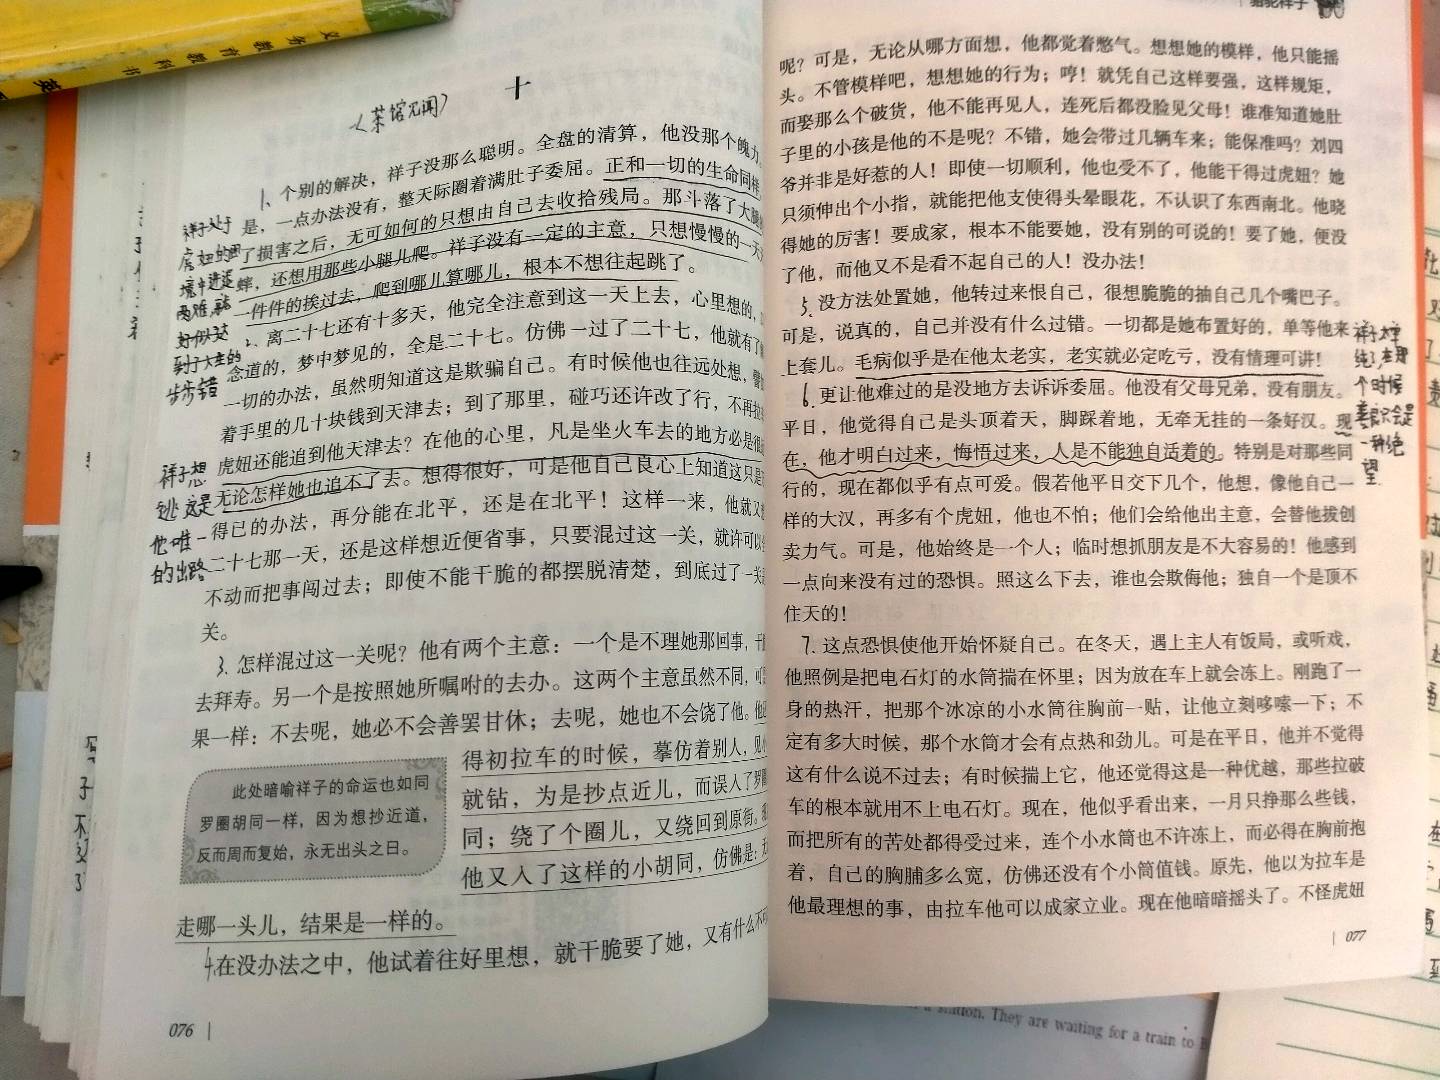 义务教育教科书
英
十
(茶馆见闻)
1、个别的解决，祥子没那么聪明。全盘的清算，他没那个魄力。
是，一点办法没有，整天际圈着满肚子委屈。正和一切的生命同样，
了损害之后，无可如何的只想由自己去收拾残局。那斗落了大腿的
蟀，还想用那些小腿儿爬。祥子没有一定的主意，只想慢慢的一天
一件件的挨过去，爬到哪儿算哪儿，根本不想往起跳了。
2、离二十七还有十多天，他完全注意到这一天上去，心里想的，
念道的，梦中梦见的，全是二十七。仿佛一过了二十七，他就有了
一切的办法，虽然明知道这是欺骗自己。有时候他也往远处想，譬
着手里的几十块钱到天津去；到了那里，碰巧还许改了行，不再拉
虎妞还能追到他天津去？在他的心里，凡是坐火车去的地方必是很
无论怎样她也追不了去。想得很好，可是他自己良心上知道这只是
得已的办法，再分能在北平，还是在北平！这样一来，他就又
二十七那一天，还是这样想近便省事，只要混过这一关，就许可以
不动而把事闯过去；即使不能干脆的都摆脱清楚，到底过了一关
关。
3、怎样混过这一关呢？他有两个主意：一个是不理她那回事，
去拜寿。另一个是按照她所嘱咐的去办。这两个主意虽然不同，可
果一样：不去呢，她必不会善罢甘休；去呢，她也不会饶了他。他
得初拉车的时候，摹仿着别人，见
就钻，为是抄点近儿，而误入了罗圈
同；绕了个圈儿，又绕回到原街。
他又入了这样的小胡同，仿佛是：
走哪一头儿，结果是一样的。
4、在没办法之中，他试着往好里想，就干脆要了她，又有什么不可
此处暗喻祥子的命运也如同
罗圈胡同一样，因为想抄近道，
反而周而复始，永无出头之日。
祥子处于
虎妞的困
境中进退
两难，就
好似这
步步错
祥子想
逃 这是
他唯一
的出路
076
骆驼祥子
呢？可是，无论从哪方面想，他都觉着憋气。想想她的模样，他只能摇
头。不管模样吧，想想她的行为；哼！就凭自己这样要强，这样规矩，
而娶那么个破货，他不能再见人，连死后都没脸见父母！谁准知道她肚
子里的小孩是他的不是呢？不错，她会带过几辆车来；能保准吗？刘四
爷并非是好惹的人！即使一切顺利，他也受不了，他能干得过虎妞？她
只须伸出个小指，就能把他支使得头晕眼花，不认识了东西南北。他晓
得她的厉害！要成家，根本不能要她，没有别的可说的！要了她，便没
了他，而他又不是看不起自己的人！没办法！
5、没方法处置她，他转过来恨自己，很想脆脆的抽自己几个嘴巴子。
可是，说真的，自己并没有什么过错。一切都是她布置好的，单等他来
上套儿。毛病似乎是在他太老实，老实就必定吃亏，没有情理可讲！
6、更让他难过的是没地方去诉诉委屈。他没有父母兄弟，没有朋友。
平日，他觉得自己是头顶着天，脚踩着地，无牵无挂的一条好汉。现
在，他才明白过来，悔悟过来，人是不能独自活着的。特别是对那些同
行的，现在都似乎有点可爱。假若他平日交下几个，他想，像他自己一
样的大汉，再多有个虎妞，他也不怕；他们会给他出主意，会替他拔创
卖力气。可是，他始终是一个人；临时想抓朋友是不大容易的！他感到
一点向来没有过的恐惧。照这么下去，谁也会欺侮他；独自一个是顶不
住天的！
7、这点恐惧使他开始怀疑自己。在冬天，遇上主人有饭局，或听戏，
他照例是把电石灯的水筒揣在怀里；因为放在车上就会冻上。刚跑了一
身的热汗，把那个冰凉的小水筒往胸前一贴，让他立刻哆嗦一下；不
定有多大时候，那个水筒才会有点热和劲儿。可是在平日，他并不觉得
这有什么说不过去；有时候揣上它，他还觉得这是一种优越，那些拉破
车的根本就用不上电石灯。现在，他似乎看出来，一月只挣那么些钱，
而把所有的苦处都得受过来，连个小水筒也不许冻上，而必得在胸前抱
着，自己的胸脯多么宽，仿佛还没有个小筒值钱。原先，他以为拉车是
他最理想的事，由拉车他可以成家立业。现在他暗暗摇头了。不怪虎妞
祥子太单
纯了，在那
个时候
善良只会是
一种绝
望
077
station. They are waiting for a train to